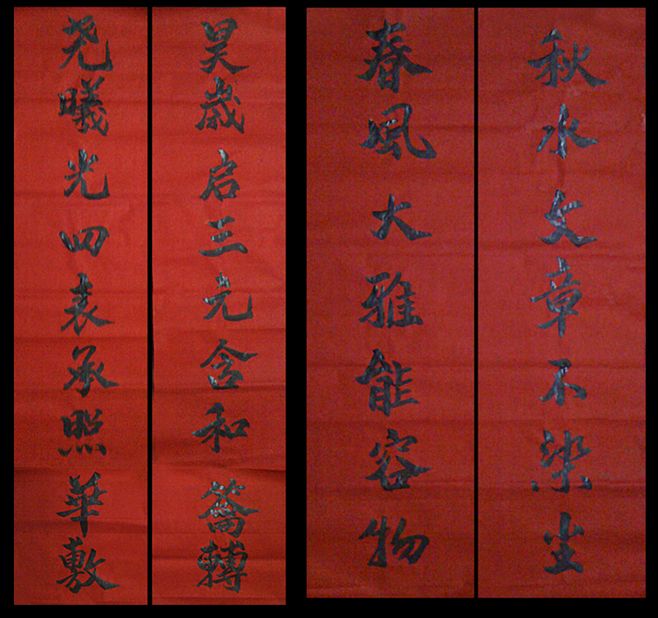 秋水文章不染尘
春風大雅能容物
昊歲启三元含和轉
尧曦光四表承照華敷